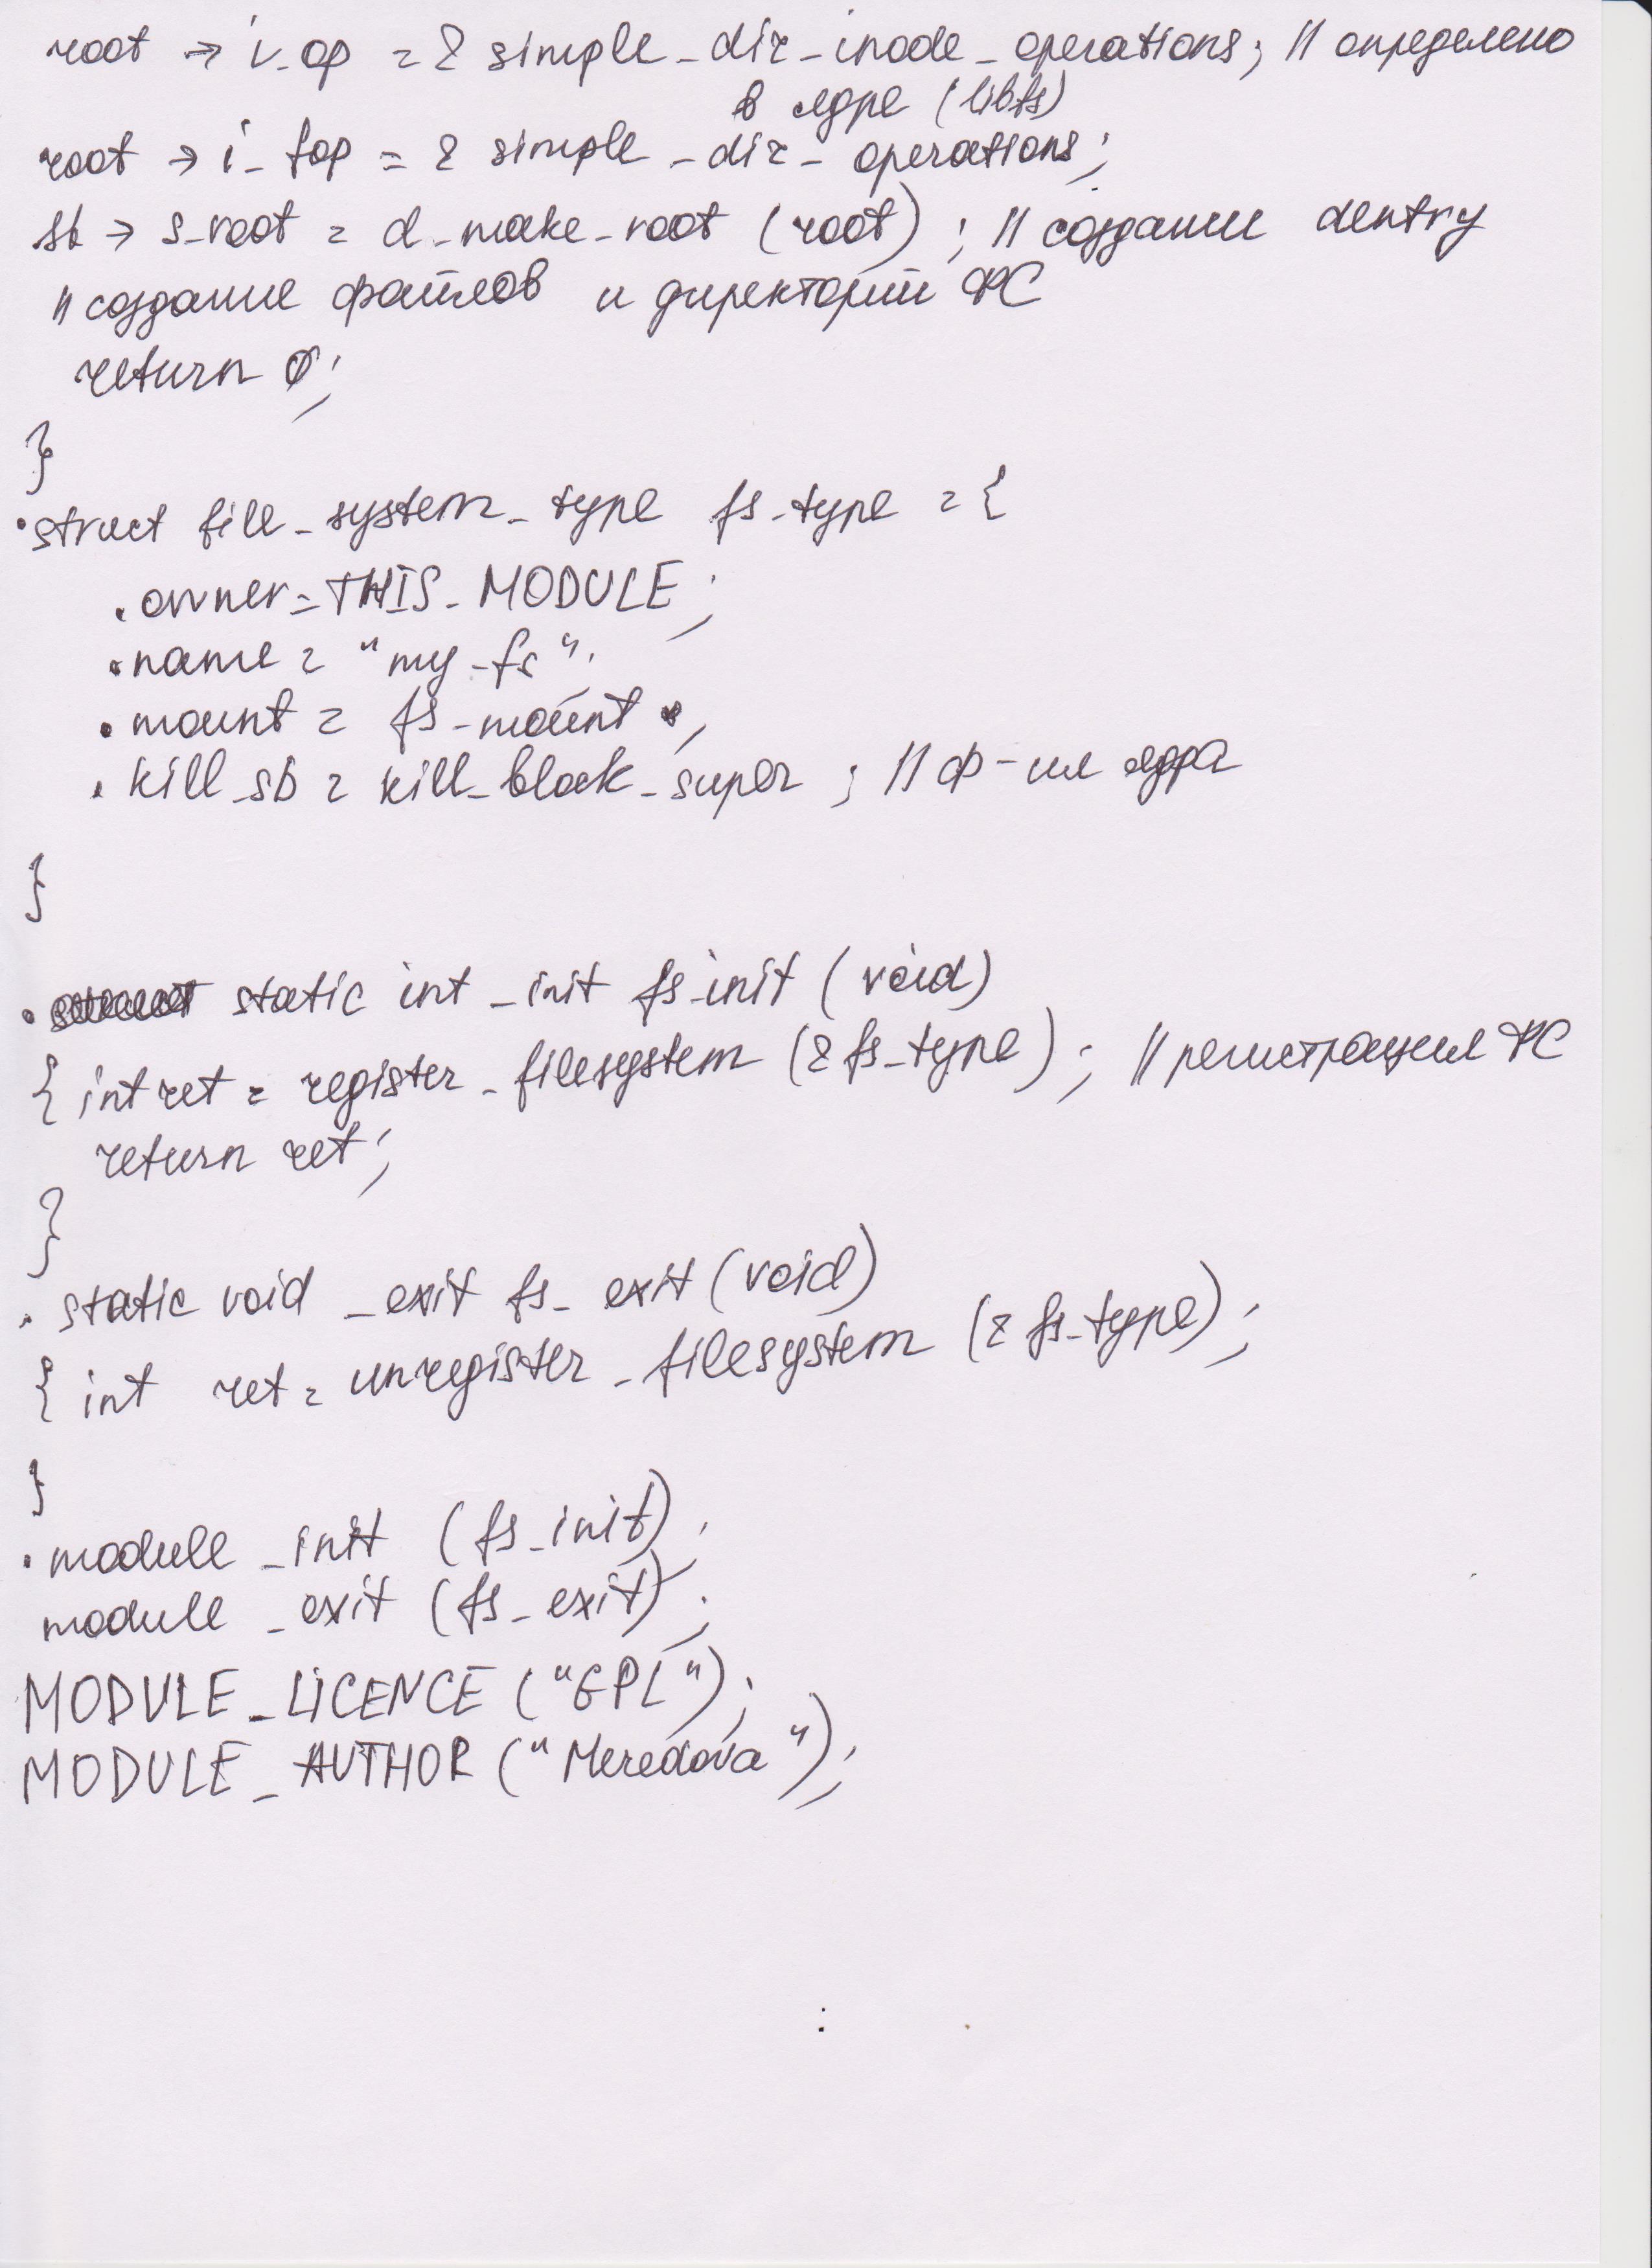 root → i_op = & simple_dir_inode_operations; // определено
в ядре (libfs)
root → i_fop = & simple_dir_operations;
sb → s_root = d_make_root (root); // создание dentry
// создание файлов и директорий ФС
return 0;
}
• struct file_system_type fs_type = {
.owner = THIS_MODULE;
.name = "my_fs",
.mount = fs_mount,
.kill_sb = kill_block_super; // ф-ия ядра
}
• static int _init fs_init (void)
{ int ret = register_filesystem (& fs_type); // регистрация ФС
return ret;
}
• static void _exit fs_exit (void)
{ int ret = unregister_filesystem (& fs_type);
}
• module_init (fs_init);
module_exit (fs_exit);
MODULE_LICENCE ("GPL");
MODULE_AUTHOR ("Meredova");